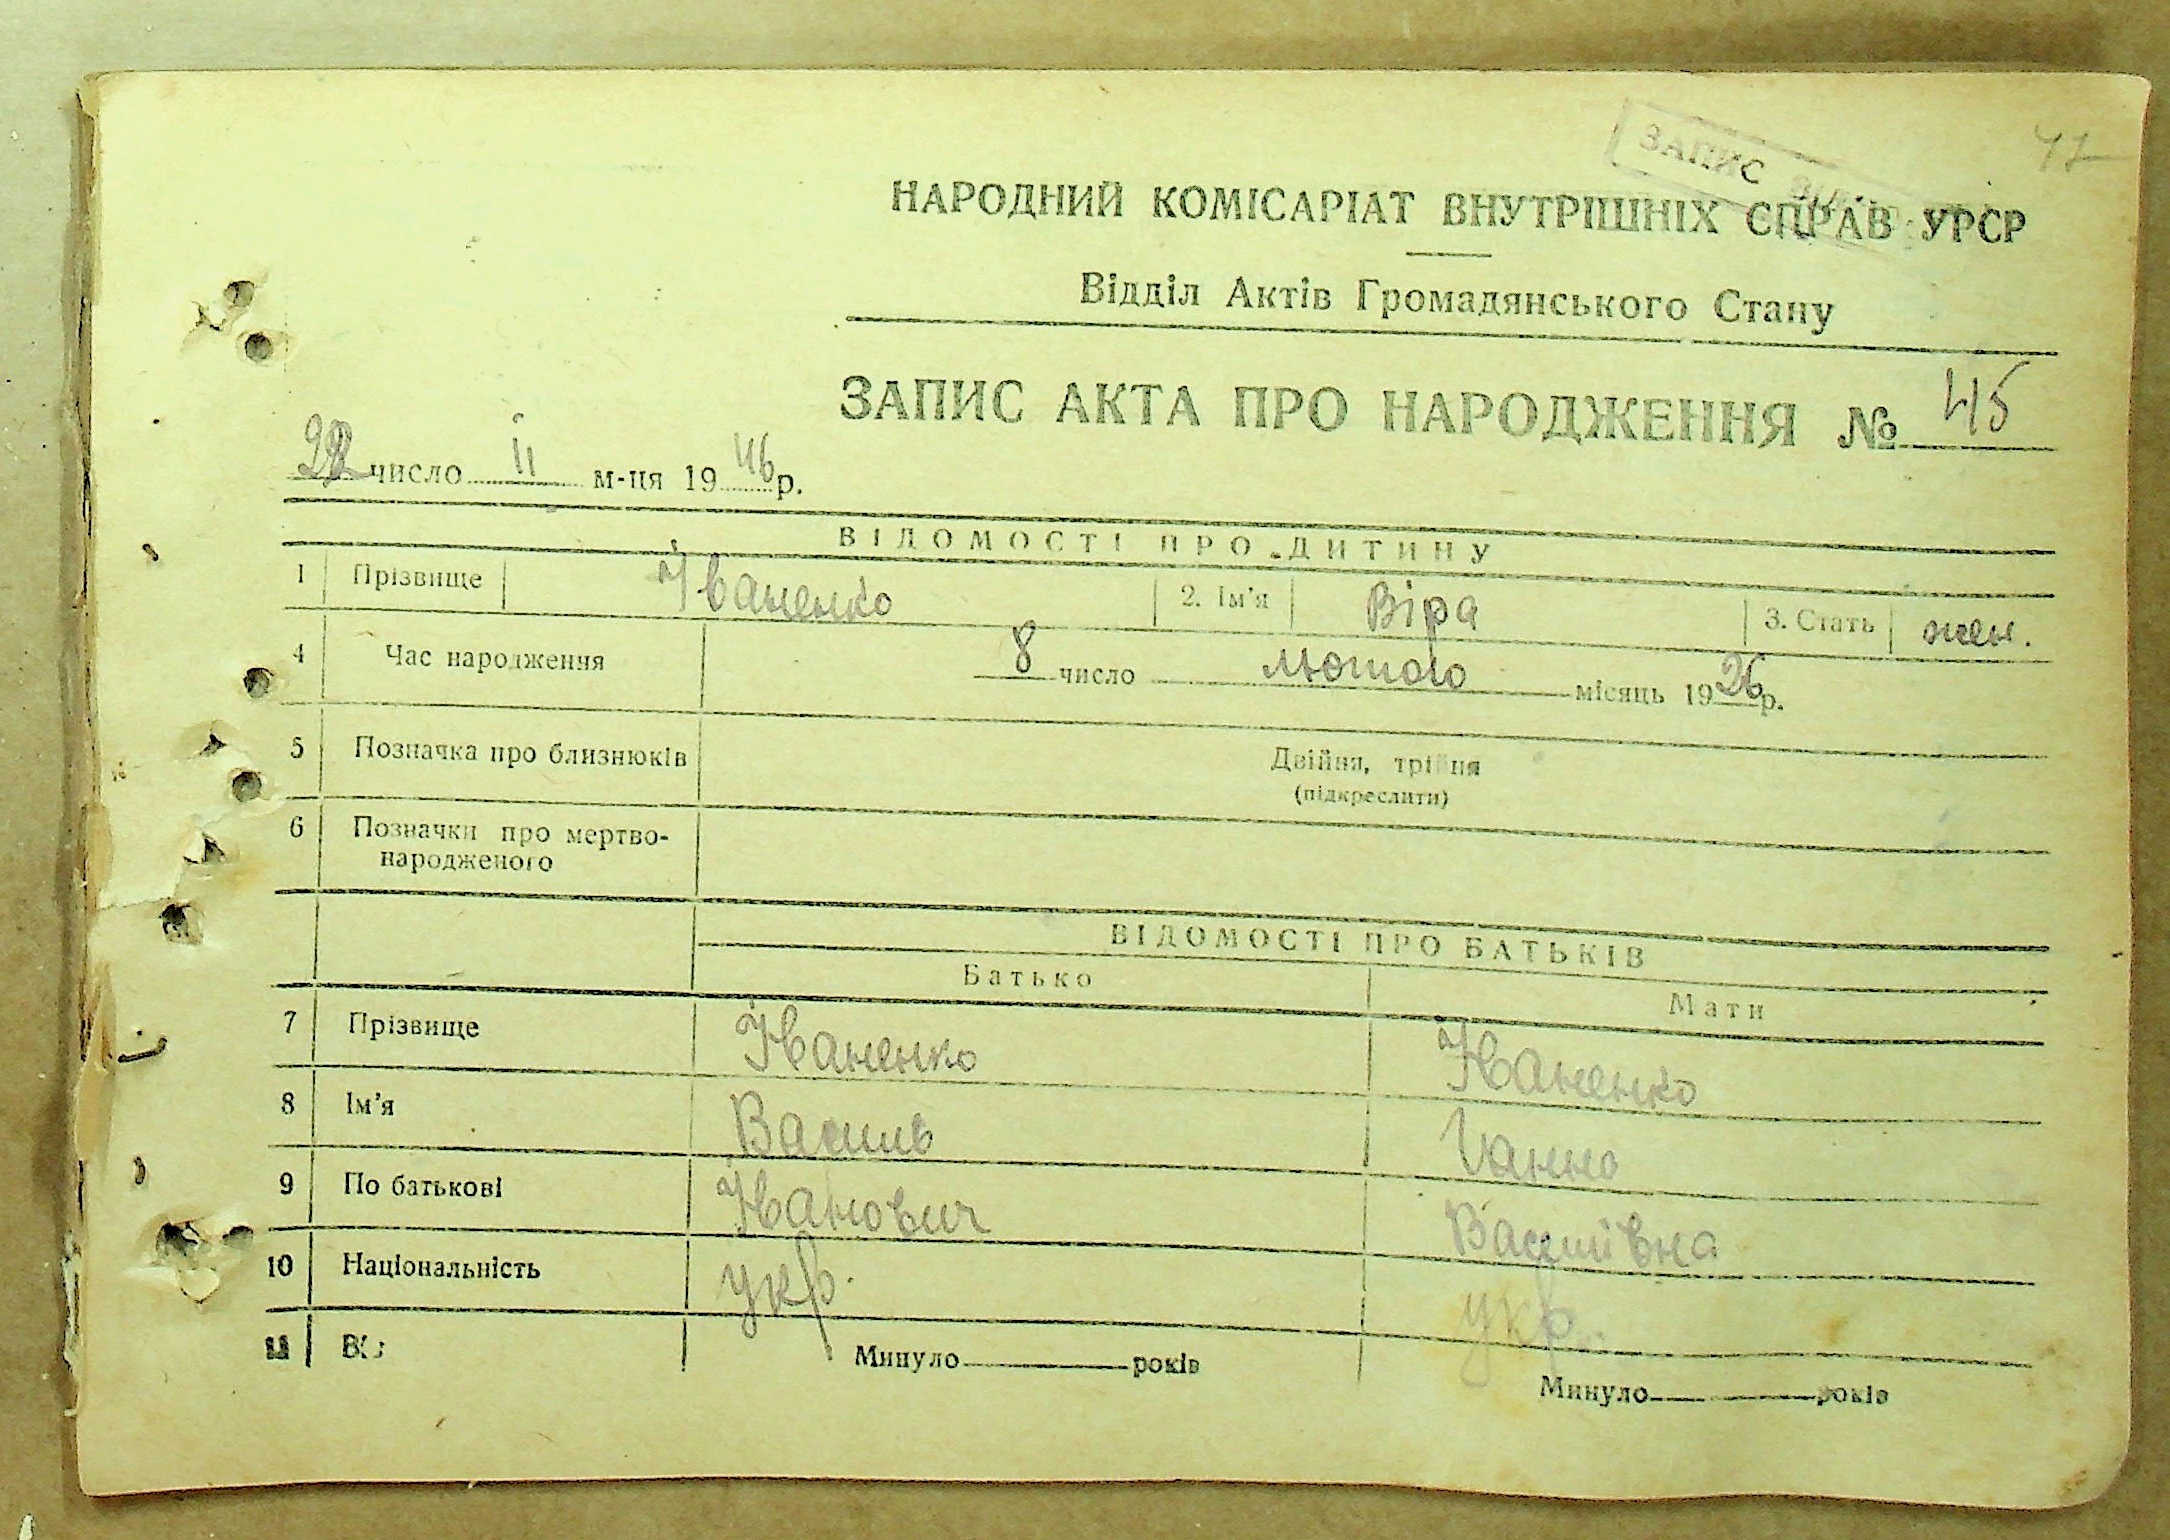 ЗАПИС
47
НАРОДНИЙ КОМІСАРІАТ ВНУТРІШНІХ СПРАВ УРСР
Відділ Актів Громадянського Стану
ЗАПИС АКТА ПРО НАРОДЖЕННЯ № 45
число II м-ця 1946 р.
ВІДОМОСТІ ПРО ДИТИНУ
1 Прізвище Іваненко 2. Ім'я Віра 3. Стать жен.
4 Час народження 8 число лютого місяць 1926 р.
5 Позначка про близнюків Двійня, трійня
(підкреслити)
6 Позначки про мертво-
народженого
ВІДОМОСТІ ПРО БАТЬКІВ
Батько Мати
7 Прізвище Іваненко Іваненко
8 Ім'я Василь Ганна
9 По батькові Іванович Василівна
10 Національність укр. укр.
11 Вік Минуло років Минуло років